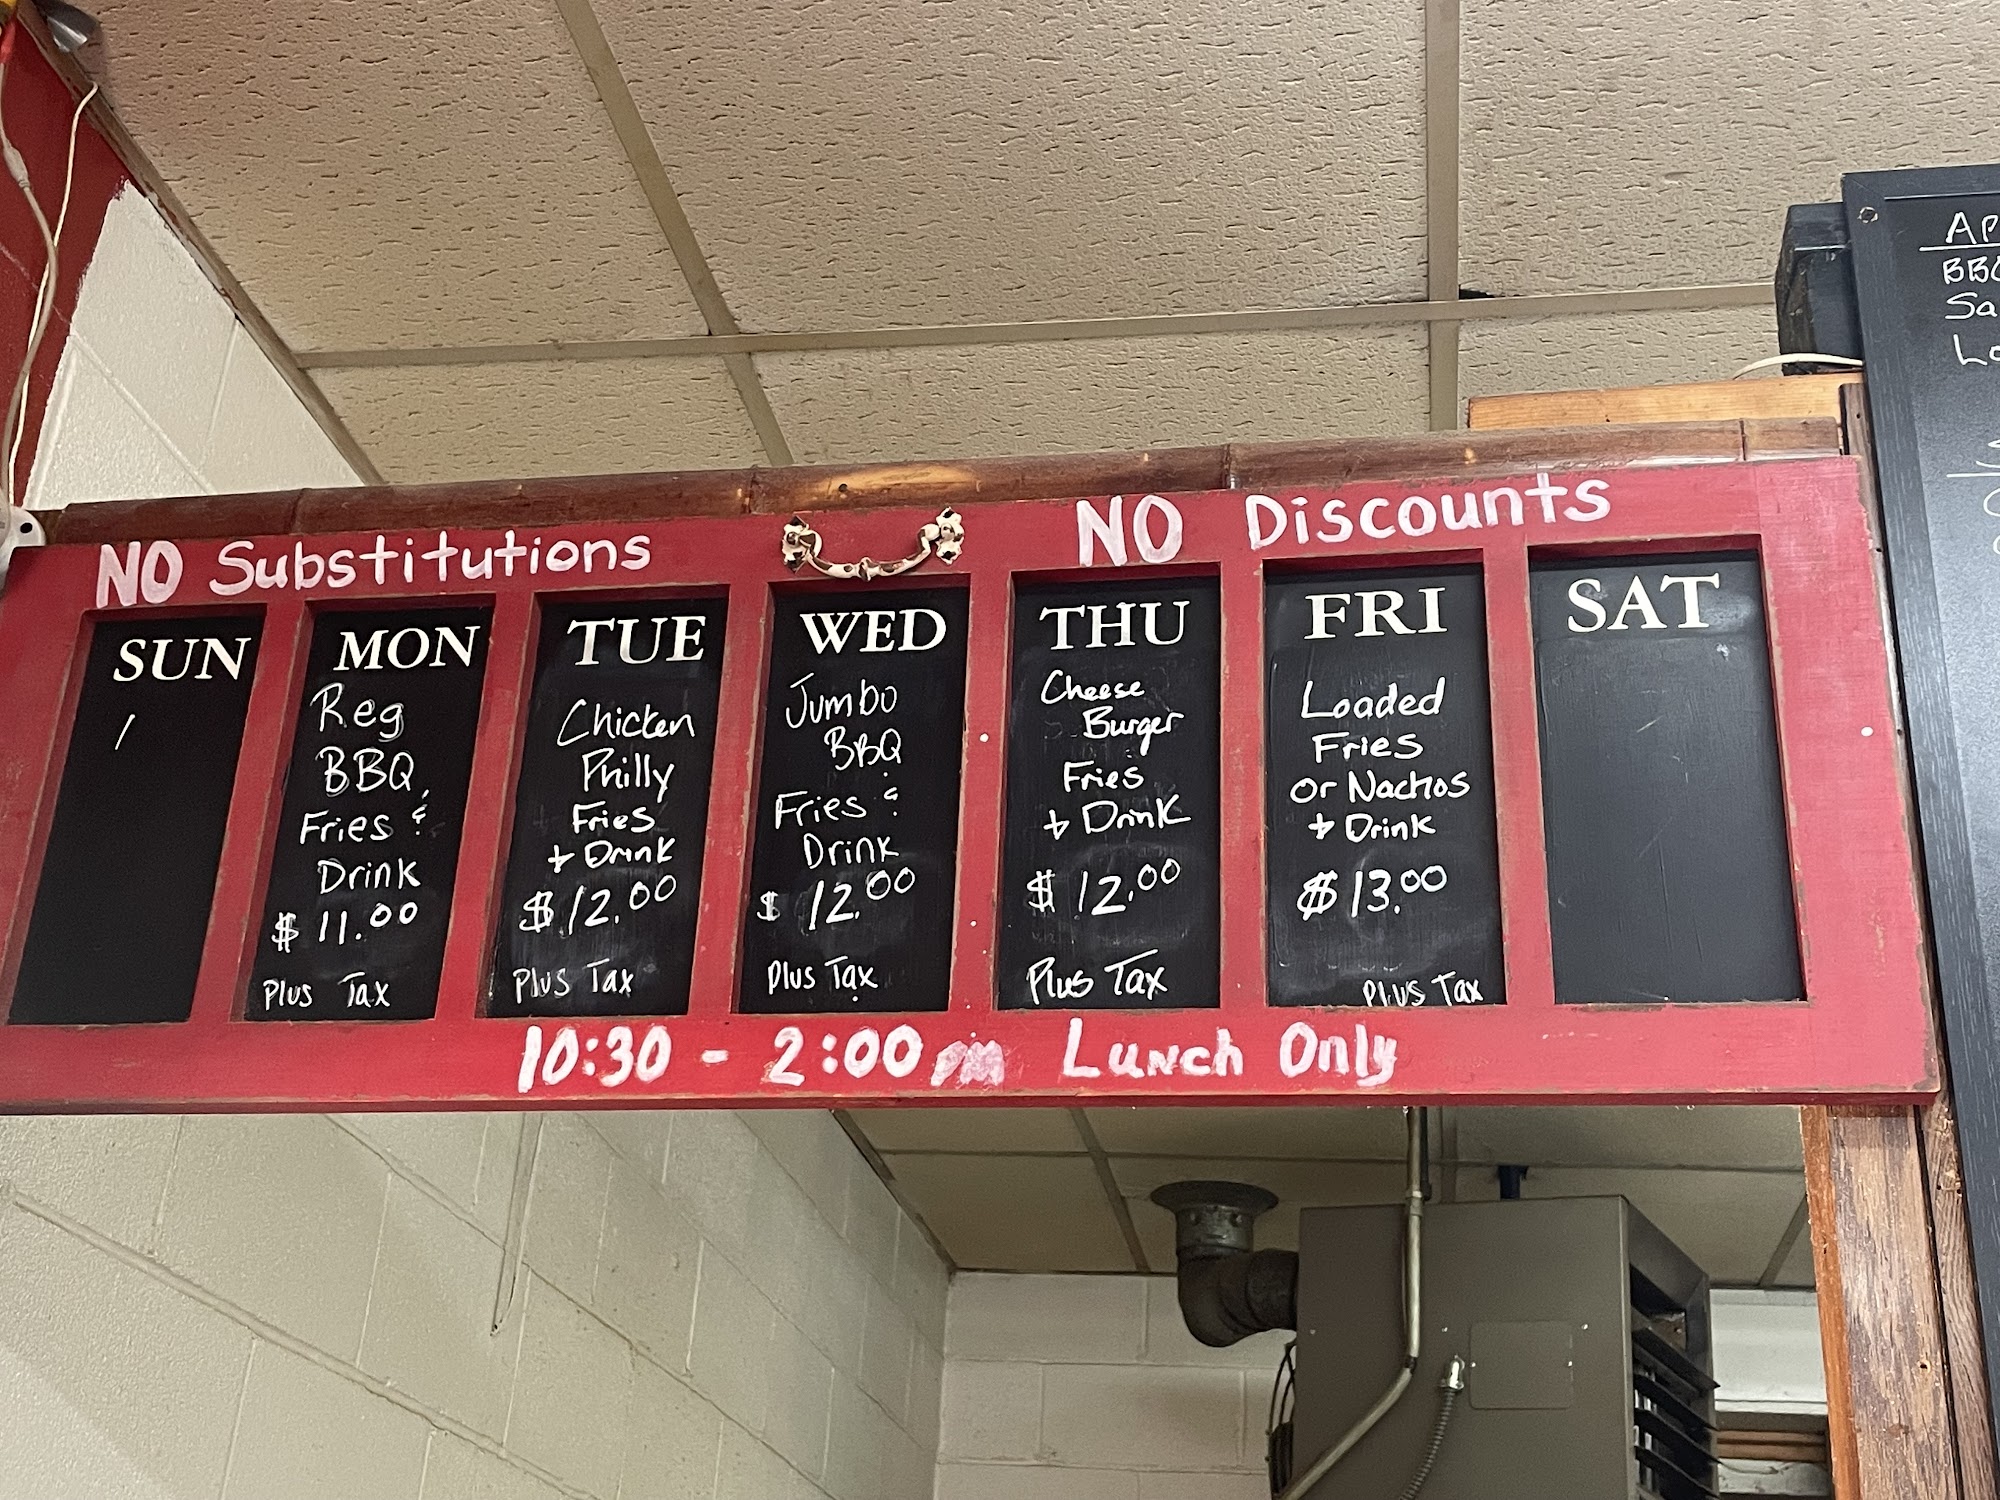 NO Substitutions
NO Discounts
SUN
MON
Reg
BBQ,
Fries &
Drink
$ 11.00
Plus Tax
TUE
Chicken
Philly
Fries
+ Drink
$ 12.00
Plus Tax
WED
Jumbo
BBQ
Fries &
Drink
$ 12.00
Plus Tax
THU
Cheese
Burger
Fries
+ Drink
$ 12.00
Plus Tax
FRI
Loaded
Fries
or Nachos
+ Drink
$ 13.00
Plus Tax
SAT
10:30 - 2:00 pm Lunch Only